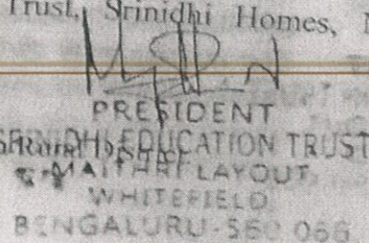 Trust, Srinidhi Homes,
PRESIDENT
SRINIDHI EDUCATION TRUST
MAITHRI LAYOUT
WHITEFIELD
BENGALURU-560 066